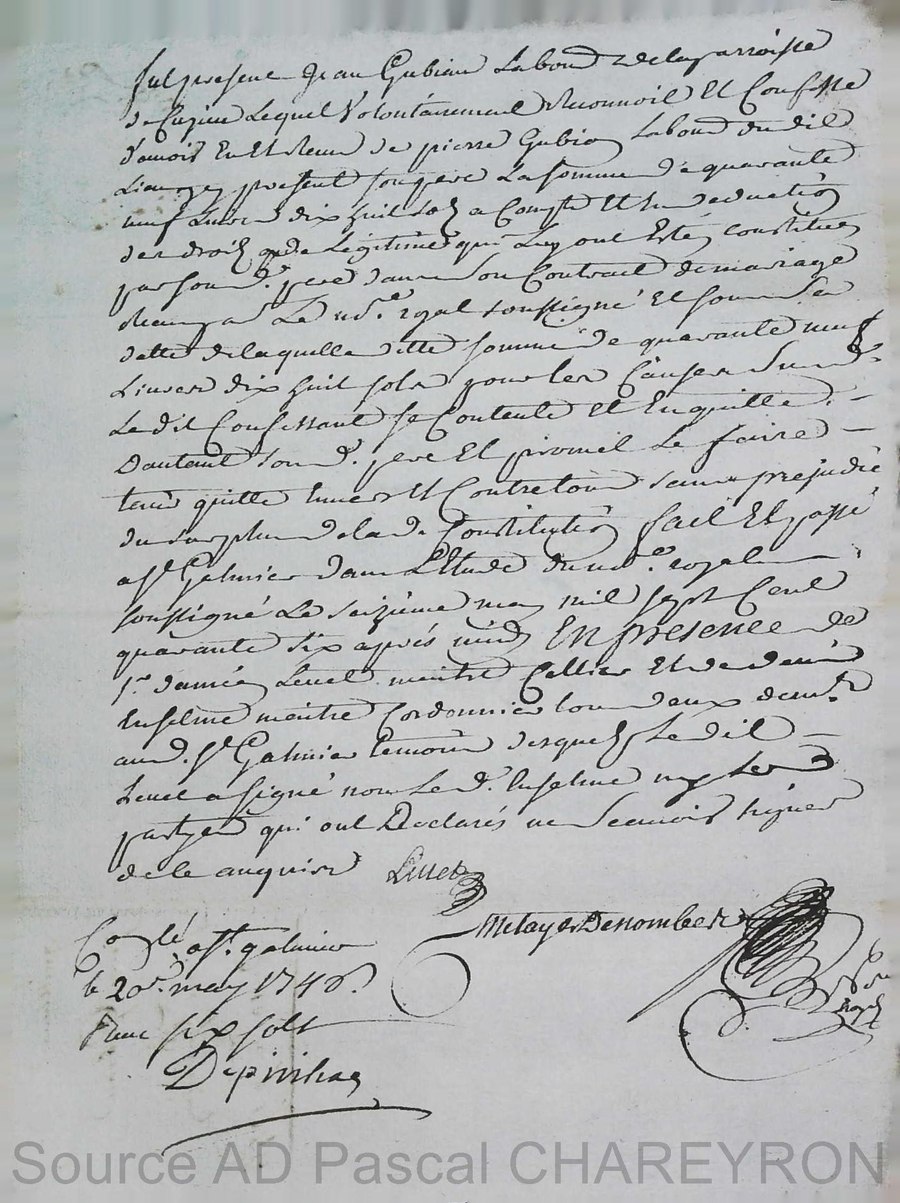 fut present Jean Gubian Laboureur de la parroisse
de Cuzieu Lequel Volontairement Reconnoit Et Confesse
d'avoir Eu Et Receu de pierre Gubian Laboureur du dit
present son pere La somme de quarante
neuf Livres dix huit sols a Compte Et en deduction
des droits de Legitime qui Luy ont Estés constitués
par son d. pere dans son Contrait de mariage
Receu par Le no.re royal soussigné Et sous sa
datte de laquelle ditte somme de quarante neuf
Livres dix huit sols pour les Causes susd.
Le dit Confessant se Contente Et En quitte
dautant son d. pere Et promet Le faire
tenir quitte Envers Et Contre tous sans prejudice
du surplus de la d. Constitution fait Et passé
a St. Galmier dans L'Etude du no.re royal
soussigné Le seizieme may mil sept Cent
quarante six après midy En presence de
sr. Levet maitre Cellier Et de
Enselme maitre Cordonnier tous deux demts.
aud. St. Galmier temoins desquels Le dit
Levet a signé non Le d. Enselme ny Les
partyes qui ont Declarés ne Scavoir signer
de ce enquis Levet
Metayer Desnombez
no.re
Royal
Con.lé a St. galmier
le 20e. may 1746
Reçu six sols
Depinhac
Source AD Pascal CHAREYRON